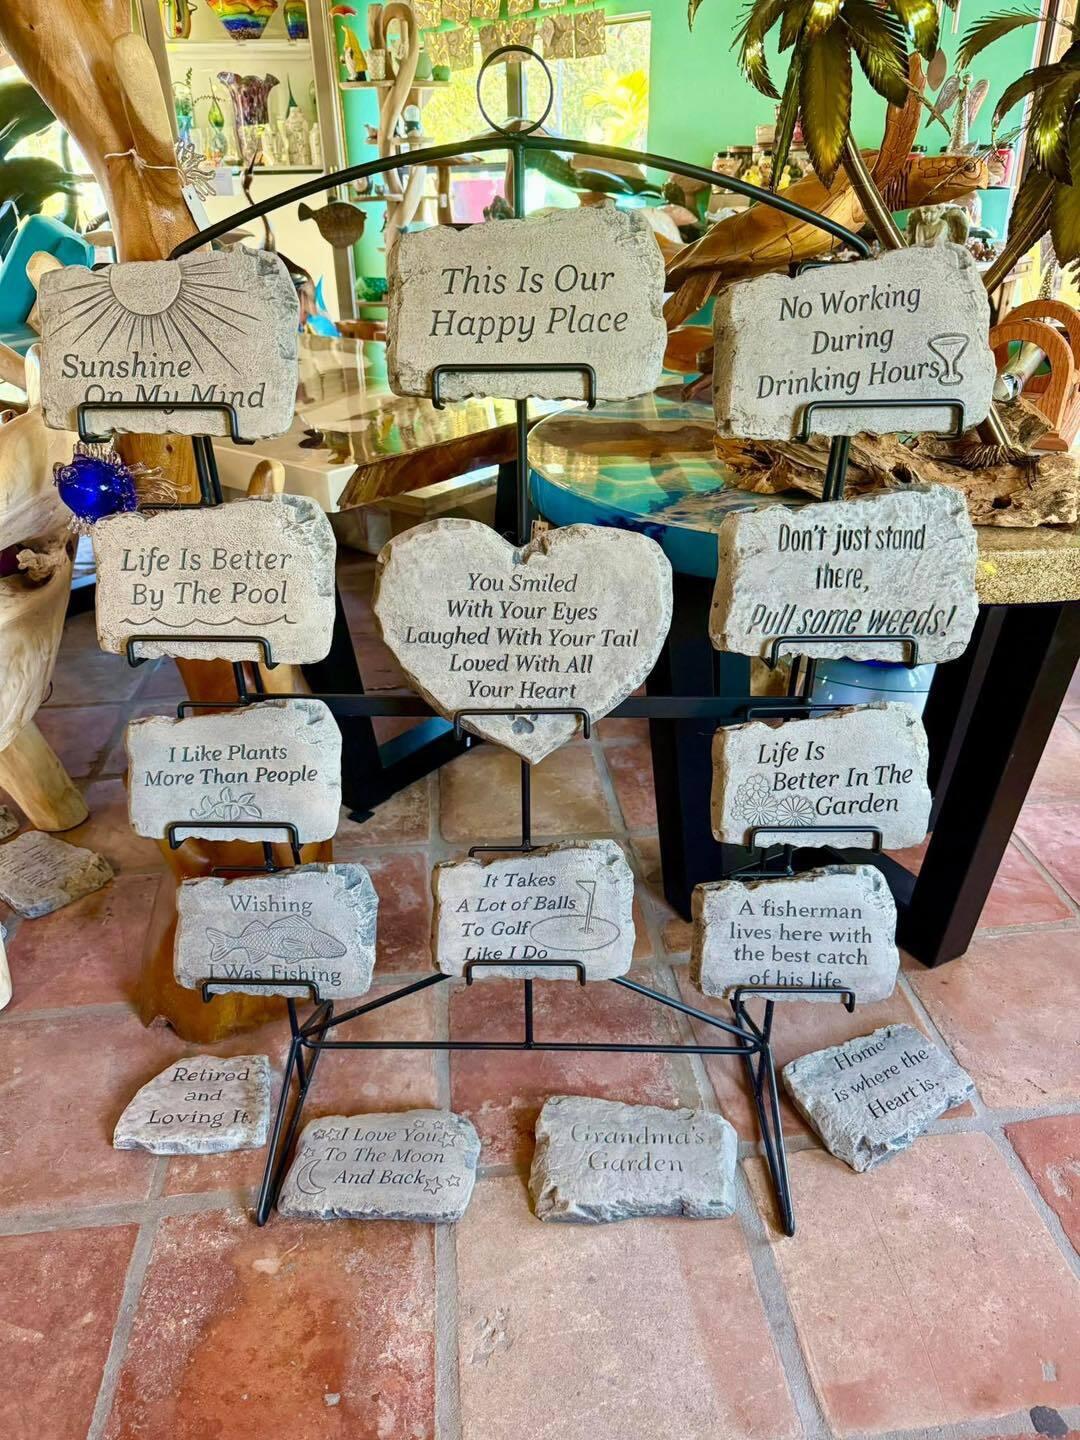 Sunshine
On My Mind
This Is Our
Happy Place
No Working
During
Drinking Hours
Life Is Better
By The Pool
You Smiled
With Your Eyes
Laughed With Your Tail
Loved With All
Your Heart
Don't just stand
there,
Pull some weeds!
I Like Plants
More Than People
Life Is
Better In The
Garden
Wishing
I Was Fishing
It Takes
A Lot of Balls
To Golf
Like I Do
A fisherman
lives here with
the best catch
of his life
Retired
and
Loving It.
I Love You
To The Moon
And Back
Grandma's
Garden
Home
is where the
Heart is.